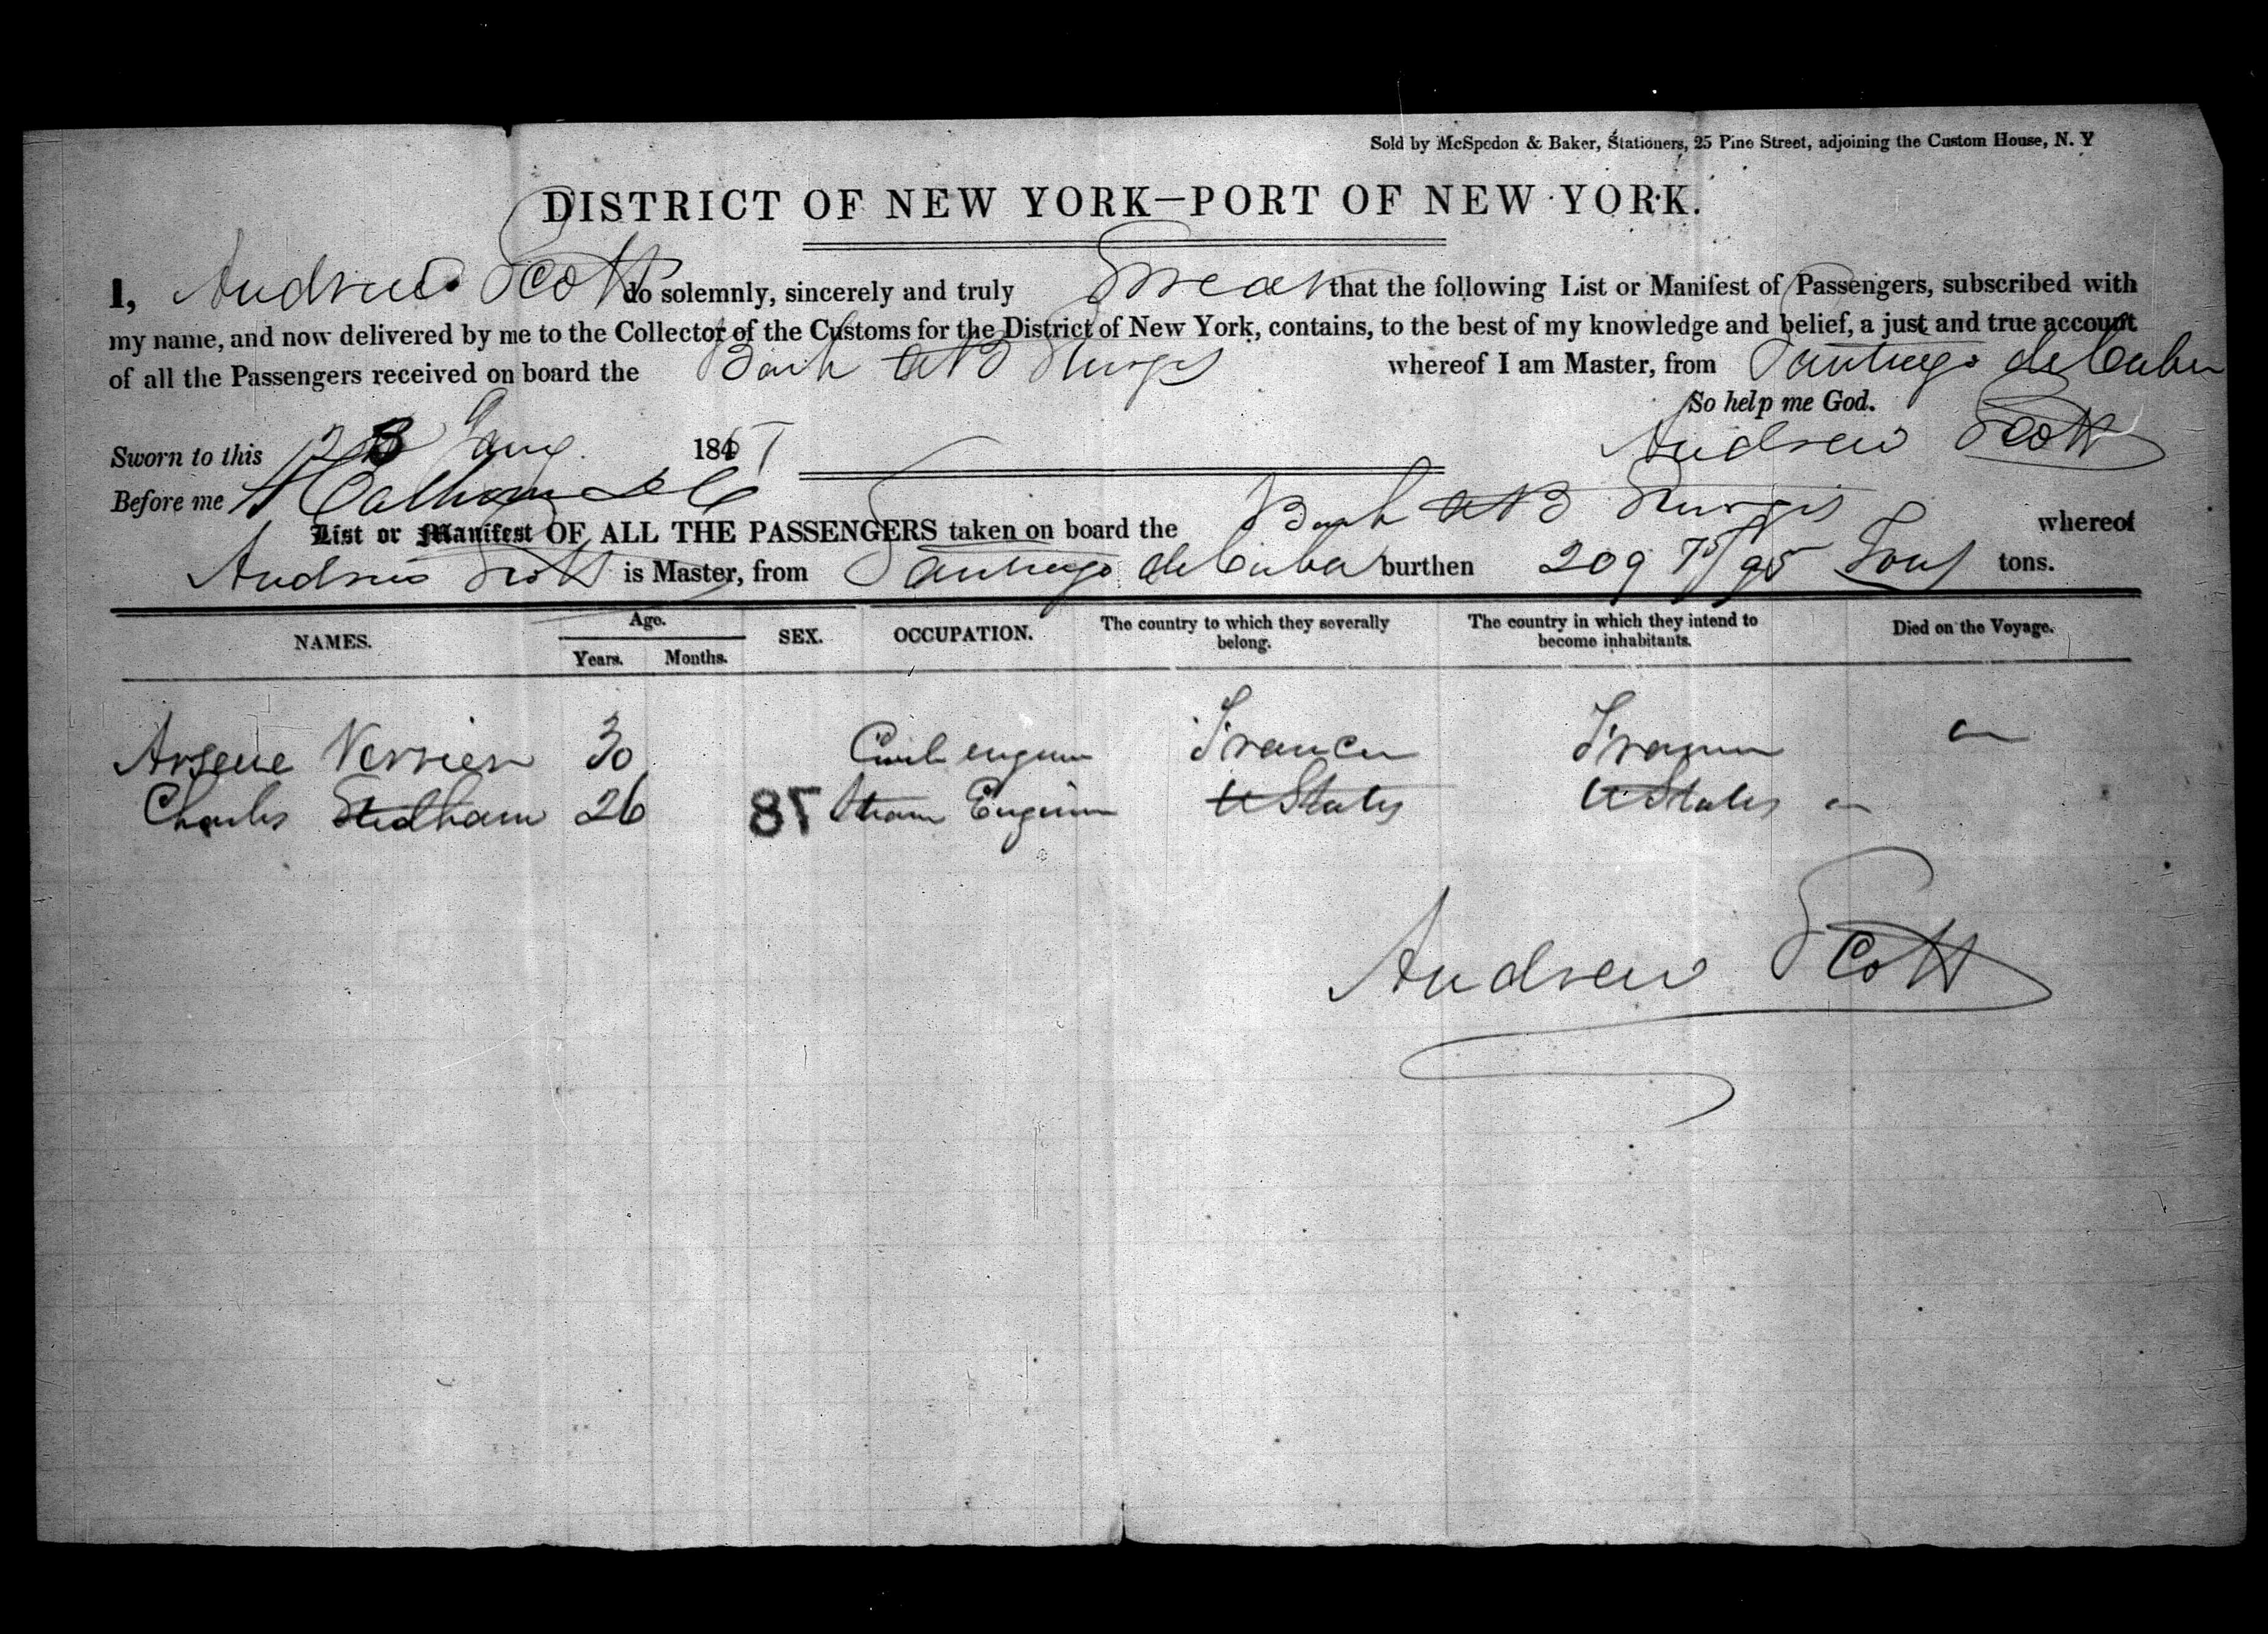 Sold by McSpedon & Baker, Stationers, 25 Pine Street, adjoining the Custom House, N. Y
DISTRICT OF NEW YORK—PORT OF NEW YORK.
I, Andrew Scott do solemnly, sincerely and truly Swear that the following List or Manifest of Passengers, subscribed with
my name, and now delivered by me to the Collector of the Customs for the District of New York, contains, to the best of my knowledge and belief, a just and true account
of all the Passengers received on board the Bark Sturgis whereof I am Master, from Santiago de Cuba
So help me God.
Sworn to this 184 Andrew Scott
Before me Calhoun
List or Manifest OF ALL THE PASSENGERS taken on board the Bark Sturgis whereof
Andrew Scott is Master, from Santiago de Cuba burthen 209 75/95 Tons tons.
NAMES. Age. Years. Months. SEX. OCCUPATION. The country to which they severally belong. The country in which they intend to become inhabitants. Died on the Voyage.
Arsene Verrier 30 Civil engineer France France
Charles Stedham 26 87 Steam Engineer U States U States
Andrew Scott